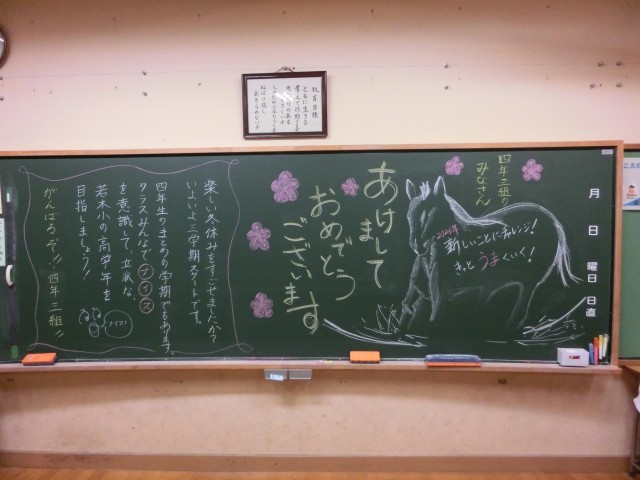 教育目標
ともに生きる
考えて行動する
四年三組の
みなさん
あけまして
おめでとう
ございます
2026年
新しいことにチャレンジ!
きっと うまくいく!
楽しい冬休みをすごせましたか?
いよいよ三学期スタートです。
四年生のまとめの学期でもあります。
クラスみんなでナイスを意識して、立派な
若木小の高学年を
目指しましょう!
がんばるぞ!!四年三組!!
ナイス!
月
日
曜日
日直